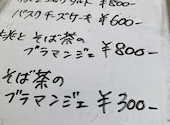 ¥800-
バスクチーズケーキ ¥600-
とそば茶の
ブラマンジェ ¥800-
そば茶の
ブラマンジェ ¥300-